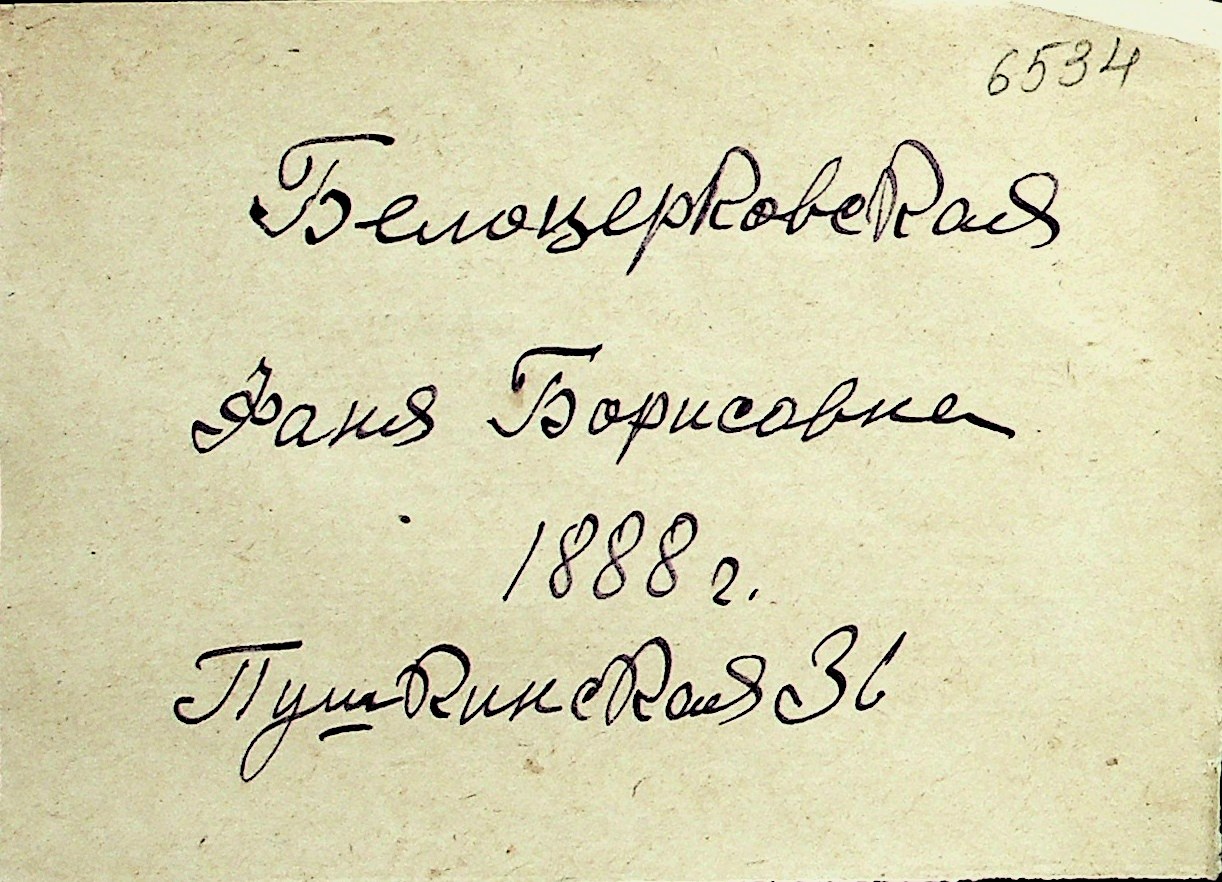 6534
Белоцерковская
Фаня Борисовна
1888 г.
Пушкинская 36